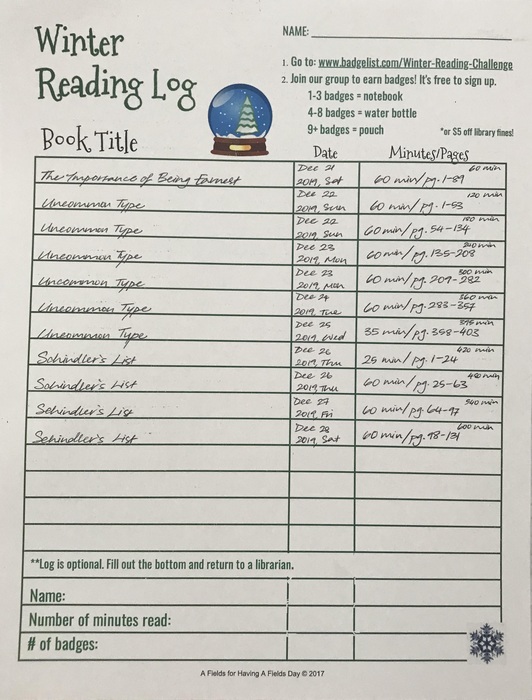 Winter
Reading Log
NAME:
1. Go to: www.badgelist.com/Winter-Reading-Challenge
2. Join our group to earn badges! It's free to sign up.
1-3 badges = notebook
4-8 badges = water bottle
9+ badges = pouch
*or $5 off library fines!
Book Title Date Minutes/Pages
The Importance of Being Earnest Dec 21 2019, Sat 60 min/pg. 1-89 60 min
Uncommon Type Dec 22 2019, Sun 60 min/pg. 1-53 120 min
Uncommon Type Dec 22 2019, Sun 60 min/pg. 54-134 180 min
Uncommon Type Dec 23 2019, Mon 60 min/pg. 135-208 240 min
Uncommon Type Dec 23 2019, Mon 60 min/pg. 209-282 300 min
Uncommon Type Dec 24 2019, Tue 60 min/pg. 283-357 360 min
Uncommon Type Dec 25 2019, Wed 35 min/pg. 358-403 395 min
Schindler's List Dec 26 2019, Thu 25 min/pg. 1-24 420 min
Schindler's List Dec 26 2019, Thu 60 min/pg. 25-63 480 min
Schindler's List Dec 27 2019, Fri 60 min/pg. 64-97 540 min
Schindler's List Dec 28 2019, Sat 60 min/pg. 98-131 600 min
**Log is optional. Fill out the bottom and return to a librarian.
Name:
Number of minutes read:
# of badges:
A Fields for Having A Fields Day © 2017